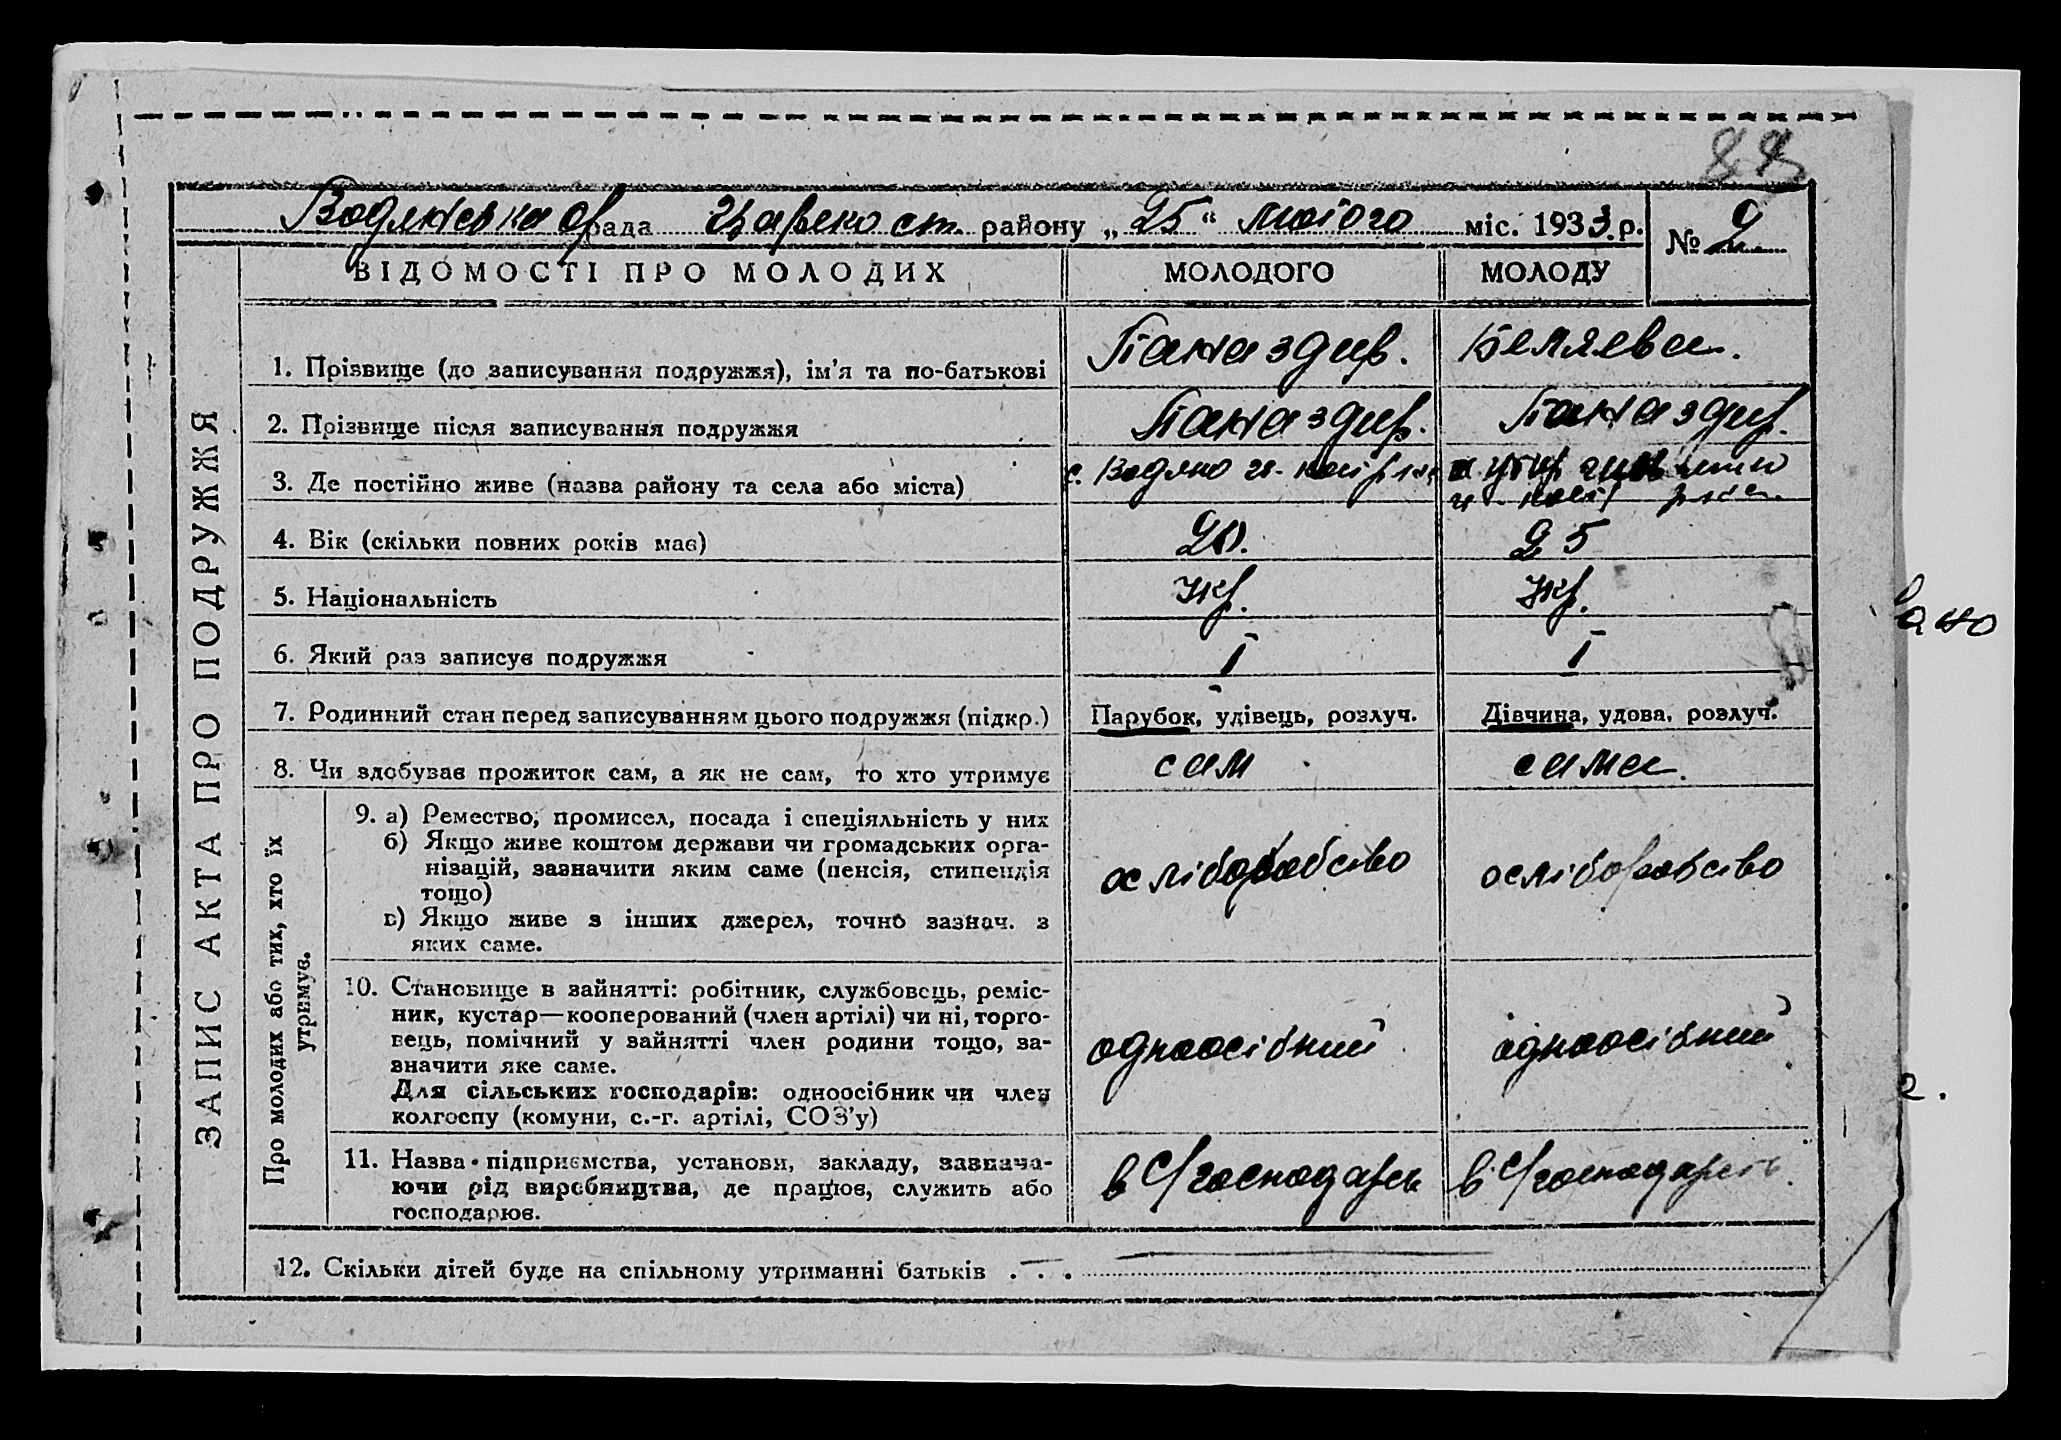 88
Водянська рада Царекост. району „25“ лютого міс. 1933 р.
№ 2
ВІДОМОСТІ ПРО МОЛОДИХ МОЛОДОГО МОЛОДУ
ЗАПИС АКТА ПРО ПОДРУЖЖЯ
1. Прізвище (до записування подружжя), ім’я та по-батькові Панаэдир. Беляева.
2. Прізвище після записування подружжя Панаэдир. Панаэдир.
3. Де постійно живе (назва району та села або міста) с. Водяно
4. Вік (скільки повних років має) 20. 25
5. Національність Укр. Укр.
6. Який раз записує подружжя I I
7. Родинний стан перед записуванням цього подружжя (підкр.) Парубок, удівець, розлуч. Дівчина, удова, розлуч.
8. Чи здобував прожиток сам, а як не сам, то хто утримує сам сама.
Про молодих або тих, хто їх
утримує.
9. а) Ремество, промисел, посада і спеціяльність у них
б) Якщо живе коштом держави чи громадських орга-
нізацій, зазначити яким саме (пенсія, стипендія
тощо)
в) Якщо живе з інших джерел, точно зазнач. з
яких саме.
осліборобство осліборобство
10. Становище в зайнятті: робітник, службовець, реміс-
ник, кустар—кооперований (член артілі) чи ні, торго-
вець, помічний у зайнятті член родини тощо, за-
значити яке саме.
Для сільських господарів: одноосібник чи член
колгоспу (комуни, с.-г. артілі, СОЗ’у)
одноосібний одноосібний
11. Назва підприємства, установи, закладу, зазнача-
ючи рід виробництва, де працює, служить або
господарює.
в С/господарсь в С/господарсть.
12. Скільки дітей буде на спільному утриманні батьків . . . —